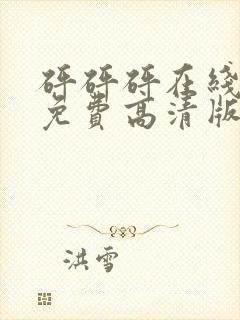 砰砰砰在线
免费高清版
洪雪